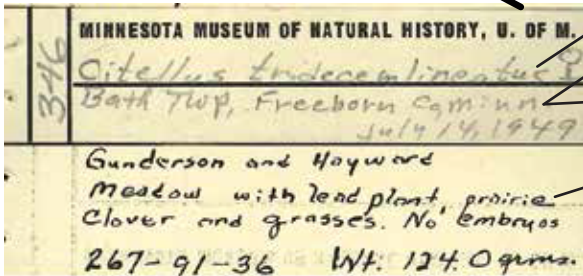 MINNESOTA MUSEUM OF NATURAL HISTORY, U. OF M.
346
Citellus tridecemlineatus ♀
Bath Twp, Freeborn Co, Minn
July 14, 1949
Gunderson and Hayward
Meadow with lead plant, prairie
Clover and grasses. No embryos
267-91-36 Wt. 124.0 grms.